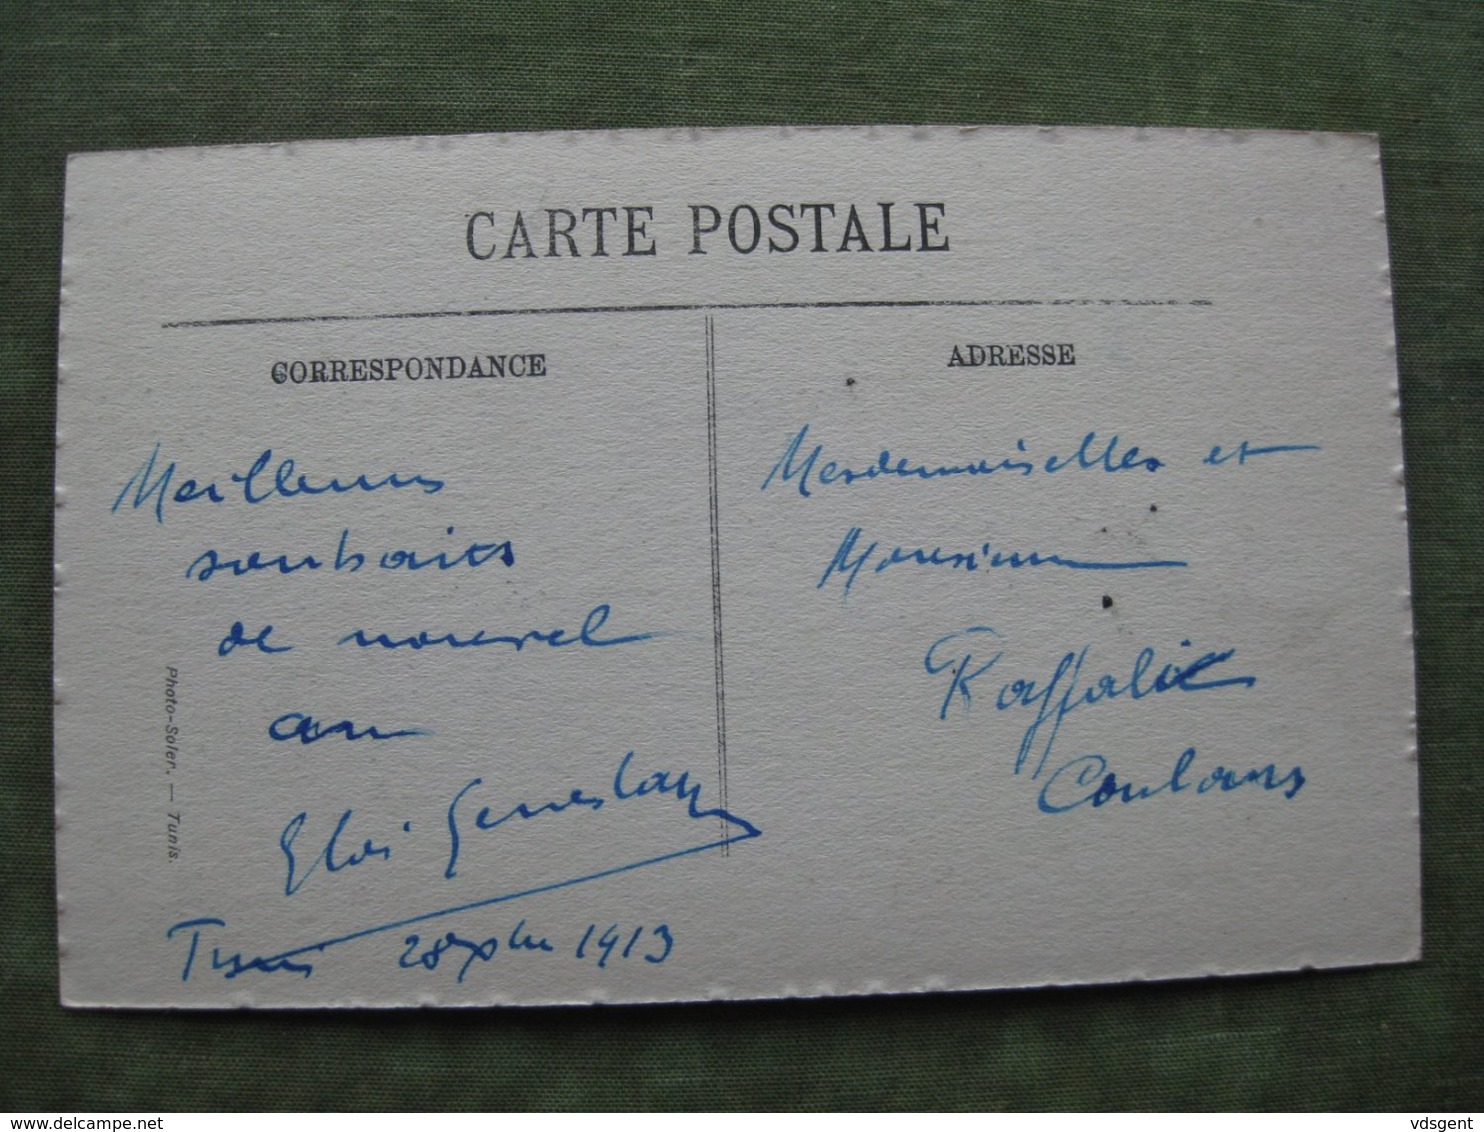 CARTE POSTALE
CORRESPONDANCE
Meilleurs
souhaits
de nouvel
an
Eloi
Tunis 28 Xbre 1913
Photo-Soler. — Tunis.
ADRESSE
Mesdemoiselles et
Monsieur
Raffalli
Coulans
www.delcampe.net
vdsgent